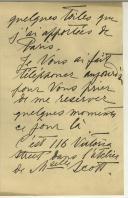 quelques toiles que
j'ai apportées de
Paris.
Je vous ai fait
téléphoner aujourd'hui
pour vous prier
de me réserver
quelques moments
ce jour là
C'est 116 Victoria
Street dans l'atelier
de Scott.